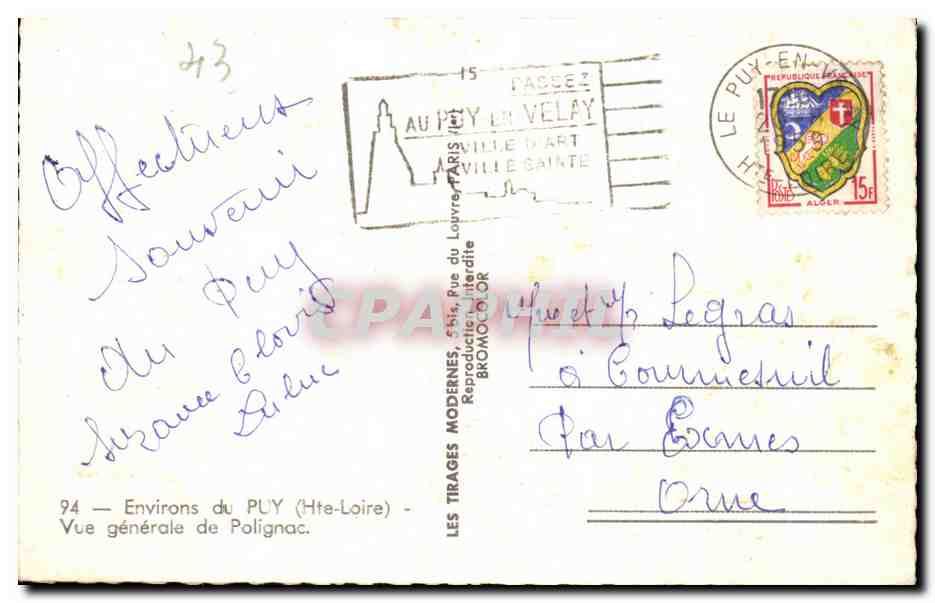 43
Affectueux
souvenir
du Puy
Suzanne Clovis
94 — Environs du PUY (Hte-Loire) -
Vue générale de Polignac.
LES TIRAGES MODERNES, 5 bis, Rue du Louvre, PARIS (1er)
Reproduction Interdite
BROMOCOLOR
15
PASSEZ
AU PUY EN VELAY
VILLE D'ART
VILLE SAINTE
LE PUY-EN-
Hte
REPUBLIQUE FRANÇAISE
POSTES
15F
ALGER
CPARPHIL
Legras
à Courmesnil
Par Exmes
Orne